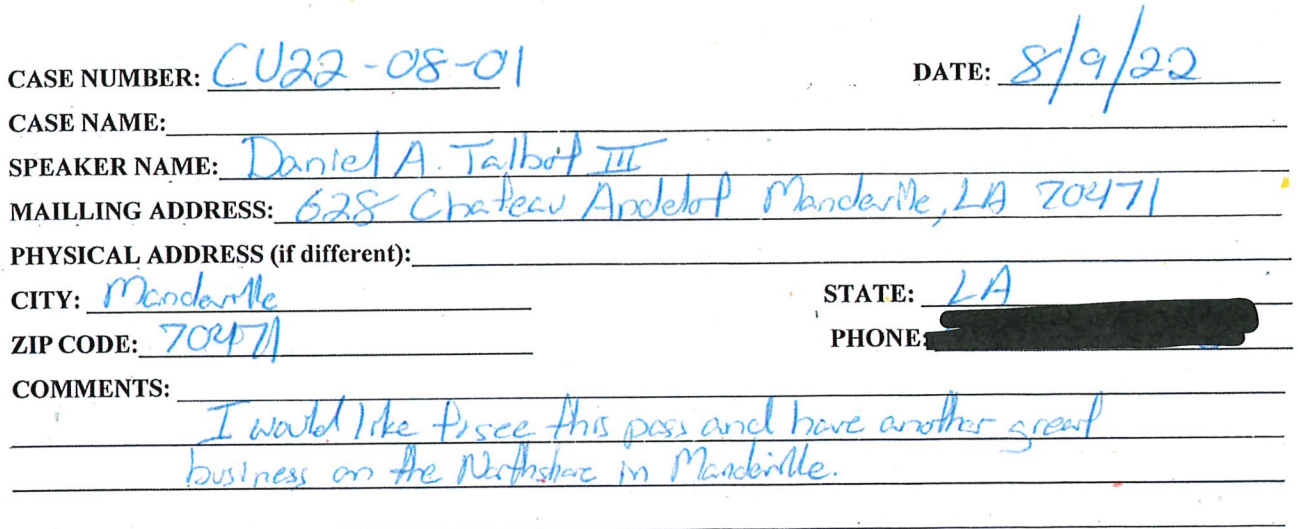 CASE NUMBER: CU22-08-01 DATE: 8/9/22
CASE NAME:
SPEAKER NAME: Daniel A. Talbot III
MAILLING ADDRESS: 628 Chateau Andelot Mandeville, LA 70471
PHYSICAL ADDRESS (if different):
CITY: Mandeville STATE: LA
ZIP CODE: 70471 PHONE:
COMMENTS:
I would like to see this pass and have another great
business on the Northshore in Mandeville.